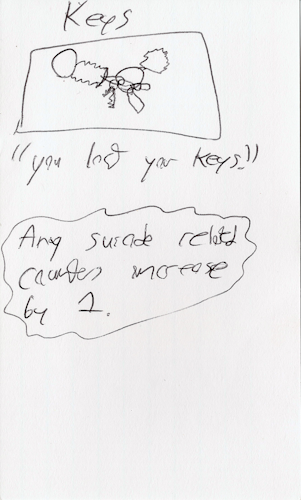 Keys
"you lost your keys."
Any suicide related
counters increase
by 1.